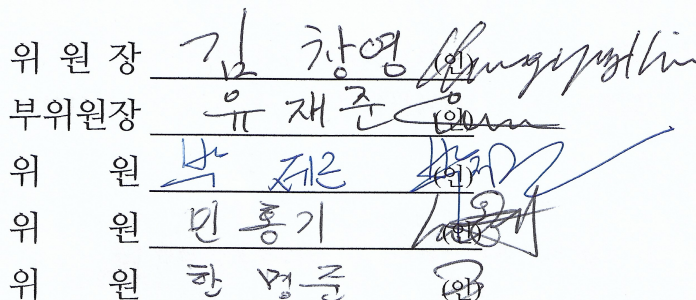 위 원 장 김 창영 (인)
부위원장 유 재 준 (인)
위 원 박 제근 (인)
위 원 민 홍기 (인)
위 원 한 명준 (인)